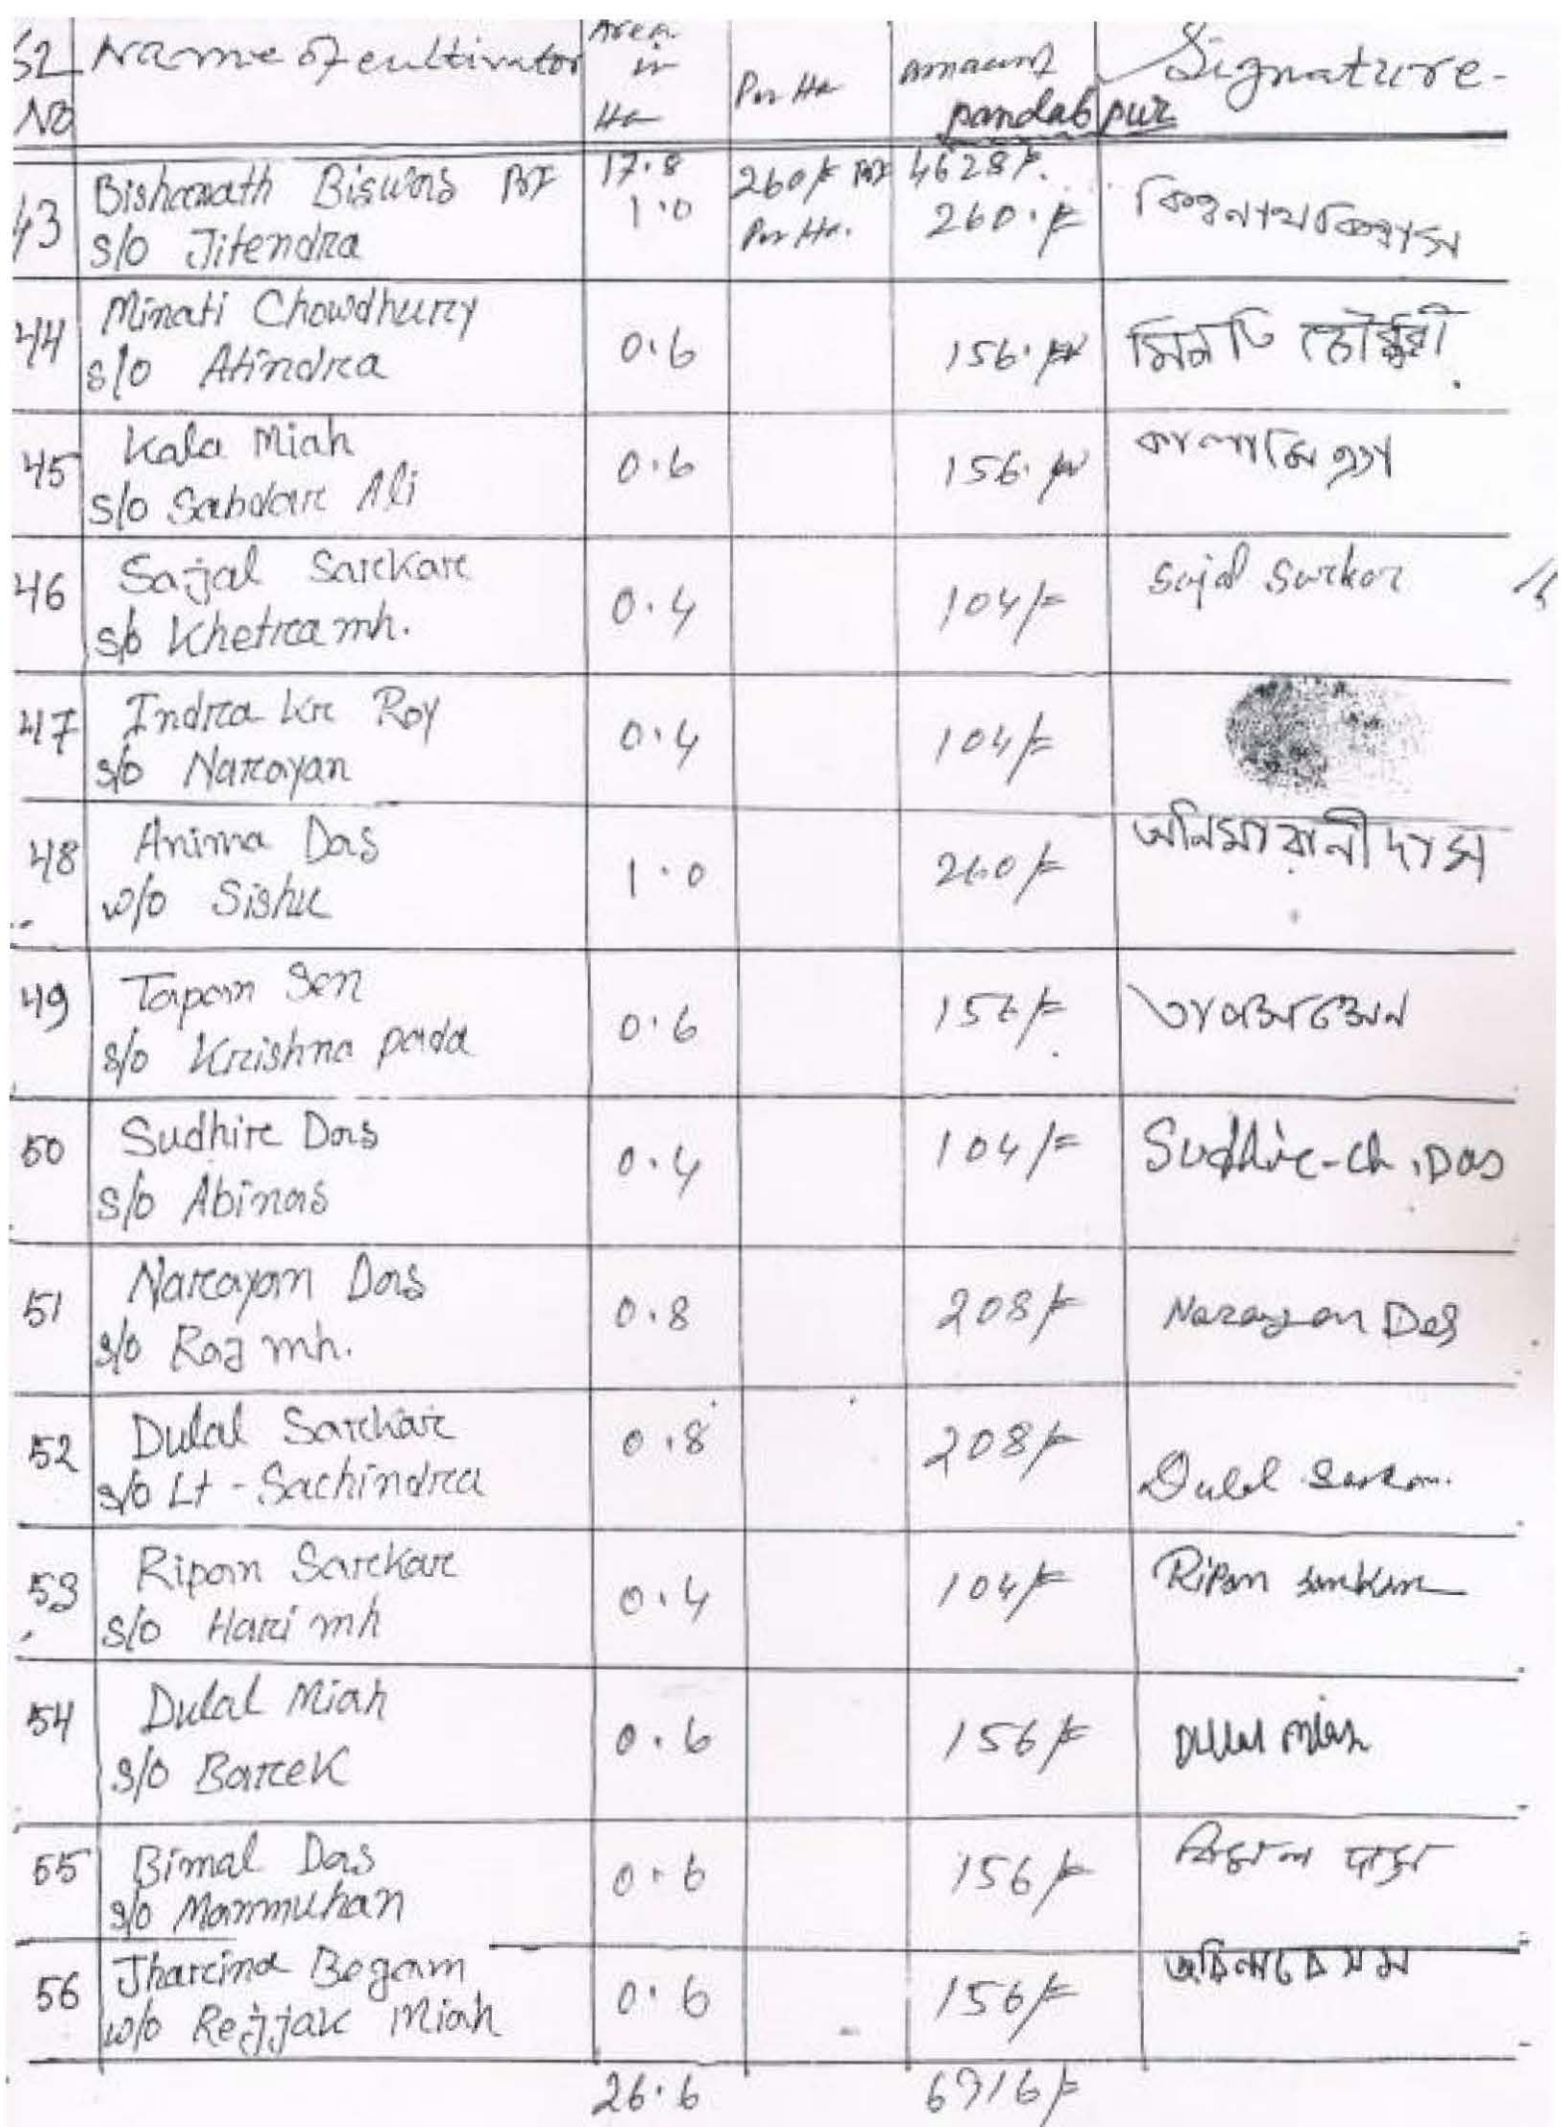 Sl No Name of cultivator Area in Ha Per Ha amount Signature
pandabpur
43 Bishwanath Biswas BF 17.8 260/= BF 4628/=
s/o Jitendra 1.0 Per Ha. 260./= বিশ্বনাথ বিশ্বাস
44 Minati Chowdhury
s/o Atindra 0.6 156. মিনতি চৌধুরী
45 Kala Miah
s/o Sabdar Ali 0.6 156. কালা মিঞা
46 Sajjal Sarkar
s/o Khetra mh. 0.4 104/= Sajal Sarkar
47 Indra kr Roy
s/o Narayan 0.4 104/=
48 Anima Das
w/o Sishu 1.0 260/= অনিমা রানী দাস
49 Tapan Sen
s/o Krishna pada 0.6 156/=
50 Sudhir Das
s/o Abinas 0.4 104/= Sudhir-ch. Das
51 Narayan Das
s/o Raj mh. 0.8 208/= Narayan Das
52 Dulal Sarkar
s/o Lt-Sachindra 0.8 208/= Dulal Sarkar
53 Ripan Sarkar
s/o Hari mh 0.4 104/= Ripan Sarkar
54 Dulal Miah
s/o Barek 0.6 156/= Dulal miah
55 Bimal Das
s/o Manmuhan 0.6 156/= বিমল দাস
56 Jharina Begam
w/o Rejjak Miah 0.6 156/= জরিনা বেগম
26.6 6916/=